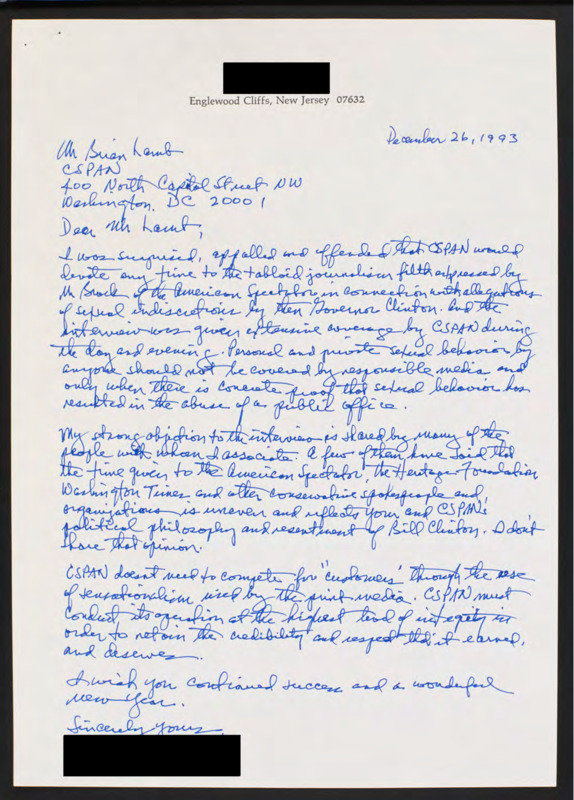 Englewood Cliffs, New Jersey 07632
December 26, 1993
Mr Brian Lamb
CSPAN
400 North Capital Street NW
Washington, DC 20001
Dear Mr Lamb,
I was surprised, appalled and offended that CSPAN would
devote any time to the tabloid journalism filth expressed by
Mr Brock of the American Spectator in connection with allegations
of sexual indiscretions by then Governor Clinton. And the
interview was given extensive coverage by CSPAN during
the day and evening. Personal and private sexual behavior by
anyone should not be covered by responsible media and
only when there is concrete proof that sexual behavior has
resulted in the abuse of a public office.
My strong objection to the interview is shared by many of the
people with whom I associate. A few of them have said that
the time given to the American Spectator, the Heritage Foundation
Washington Times and other conservative spokespeople and
organizations is uneven and reflects your and CSPAN's
political philosophy and resentment of Bill Clinton. I don't
share that opinion.
CSPAN doesn't need to compete for "customers" through the use
of sensationalism used by the print media. CSPAN must
conduct its operation at the highest level of integrity in
order to retain the credibility and respect that it earned,
and deserves.
I wish you continued success and a wonderful
New Year.
Sincerely yours,